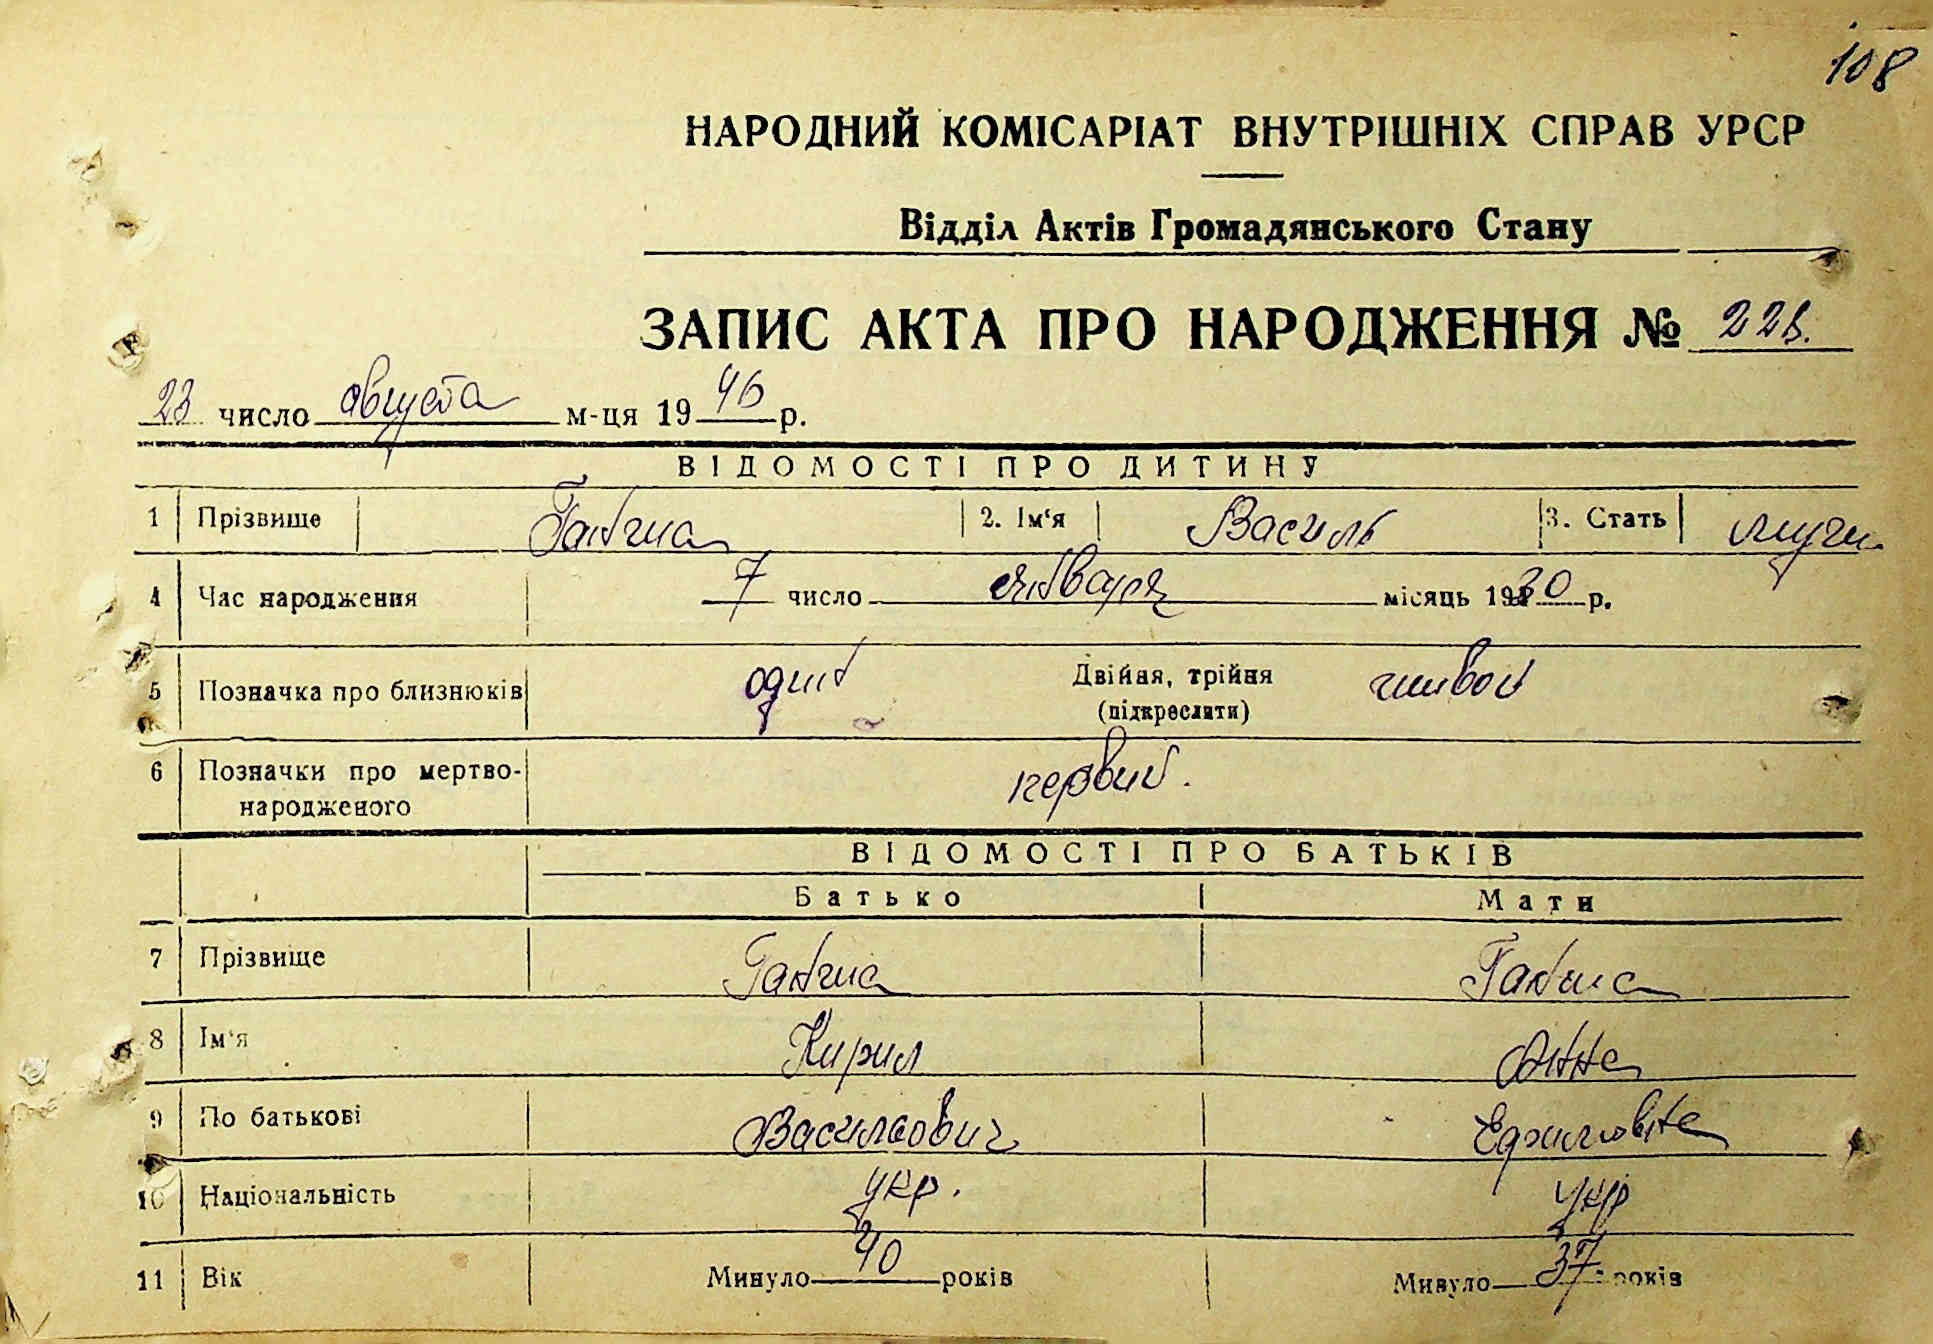 108
НАРОДНИЙ КОМІСАРІАТ ВНУТРІШНІХ СПРАВ УРСР
Відділ Актів Громадянського Стану
ЗАПИС АКТА ПРО НАРОДЖЕННЯ №
23 число августа м-ця 1946 р.
ВІДОМОСТІ ПРО ДИТИНУ
1 Прізвище 2. Ім'я Василь 3. Стать
4 Час народження 7 число января місяць 1930 р.
5 Позначка про близнюків один Двійня, трійня живой
(підкреслити)
6 Позначки про мертво- первий.
народженого
ВІДОМОСТІ ПРО БАТЬКІВ
Батько Мати
7 Прізвище
8 Ім'я Кирил Анна
9 По батькові Васильович Ефимовна
10 Національність укр. укр
11 Вік Минуло 40 років Минуло 37 років